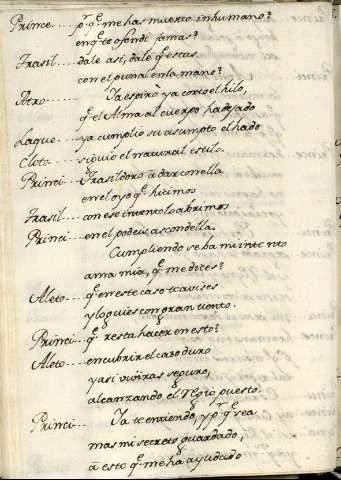 Prince.... pr q̃ me has muerto inhumano?
enq̃ te ofendi jamas?
Frasil.... dale asi, dale q̃ estas
con el puñal en la mano?
Atro..... Ia espirò ya corto el hilo,
q̃ el Alma al cuerpo ha dejado
Laque.... ya cumplio su asumpto el hado
Cloto.... siguio el natural estilo.
Princi.... Frasildoro a darconella
en el oyo q̃ hicimos
Frasil.... con ese intento lo abrimos.
Princi.... en el podeis ascondella.
Cumpliendo se ha mi intento
ama mia, q̃ me dices?
Aleto.... q̃ en este caso te avises
y lo guies con gran tiento.
Princi... q̃ resta hacer en esto?
Aleto.... encubrir el caso duro
y asi viviras seguro,
alcanzando el Regio puesto.
Princi.... Ia te entiendo, y pr q̃ sea
mas mi secreto guardado,
a este q̃ me ha ayudado